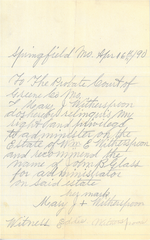 Springfield Mo. Apr 16th/90
To The Probate Court of
Greene Co. Mo.
I Mary J Witherspoon
do hereby relinquish my
right and privilege
to administer on the
Estate of Wm E Witherspoon
and recommend the
name of Wm H Glass
for administrator
on said estate
her mark
Mary J + Witherspoon
Witness Witherspoon